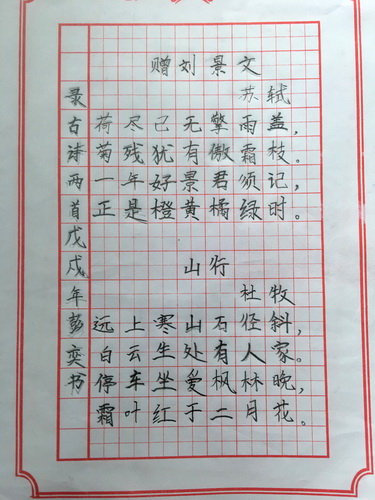 赠刘景文
苏轼
荷尽已无擎雨盖，
菊残犹有傲霜枝。
一年好景君须记，
正是橙黄橘绿时。
山行
杜牧
远上寒山石径斜，
白云生处有人家。
停车坐爱枫林晚，
霜叶红于二月花。
录古诗两首戊戌年彭奕书